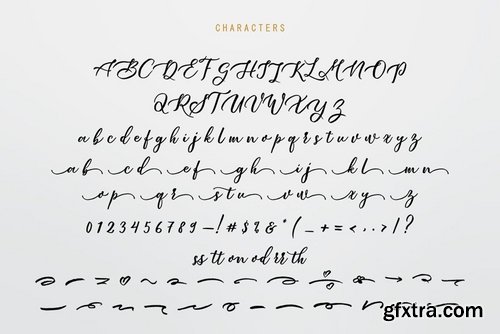 CHARACTERS
ABCDEFGHIJKLMNOP
QRSTUVWXYZ
abcdefghijklmnopqrstuvwxyz
ab cd ef gh ij kl mn
op qr st uv wx yz
0123456789–!#$%&*(_+=<..>/?
ss tt on od rr th
gfxtra.com